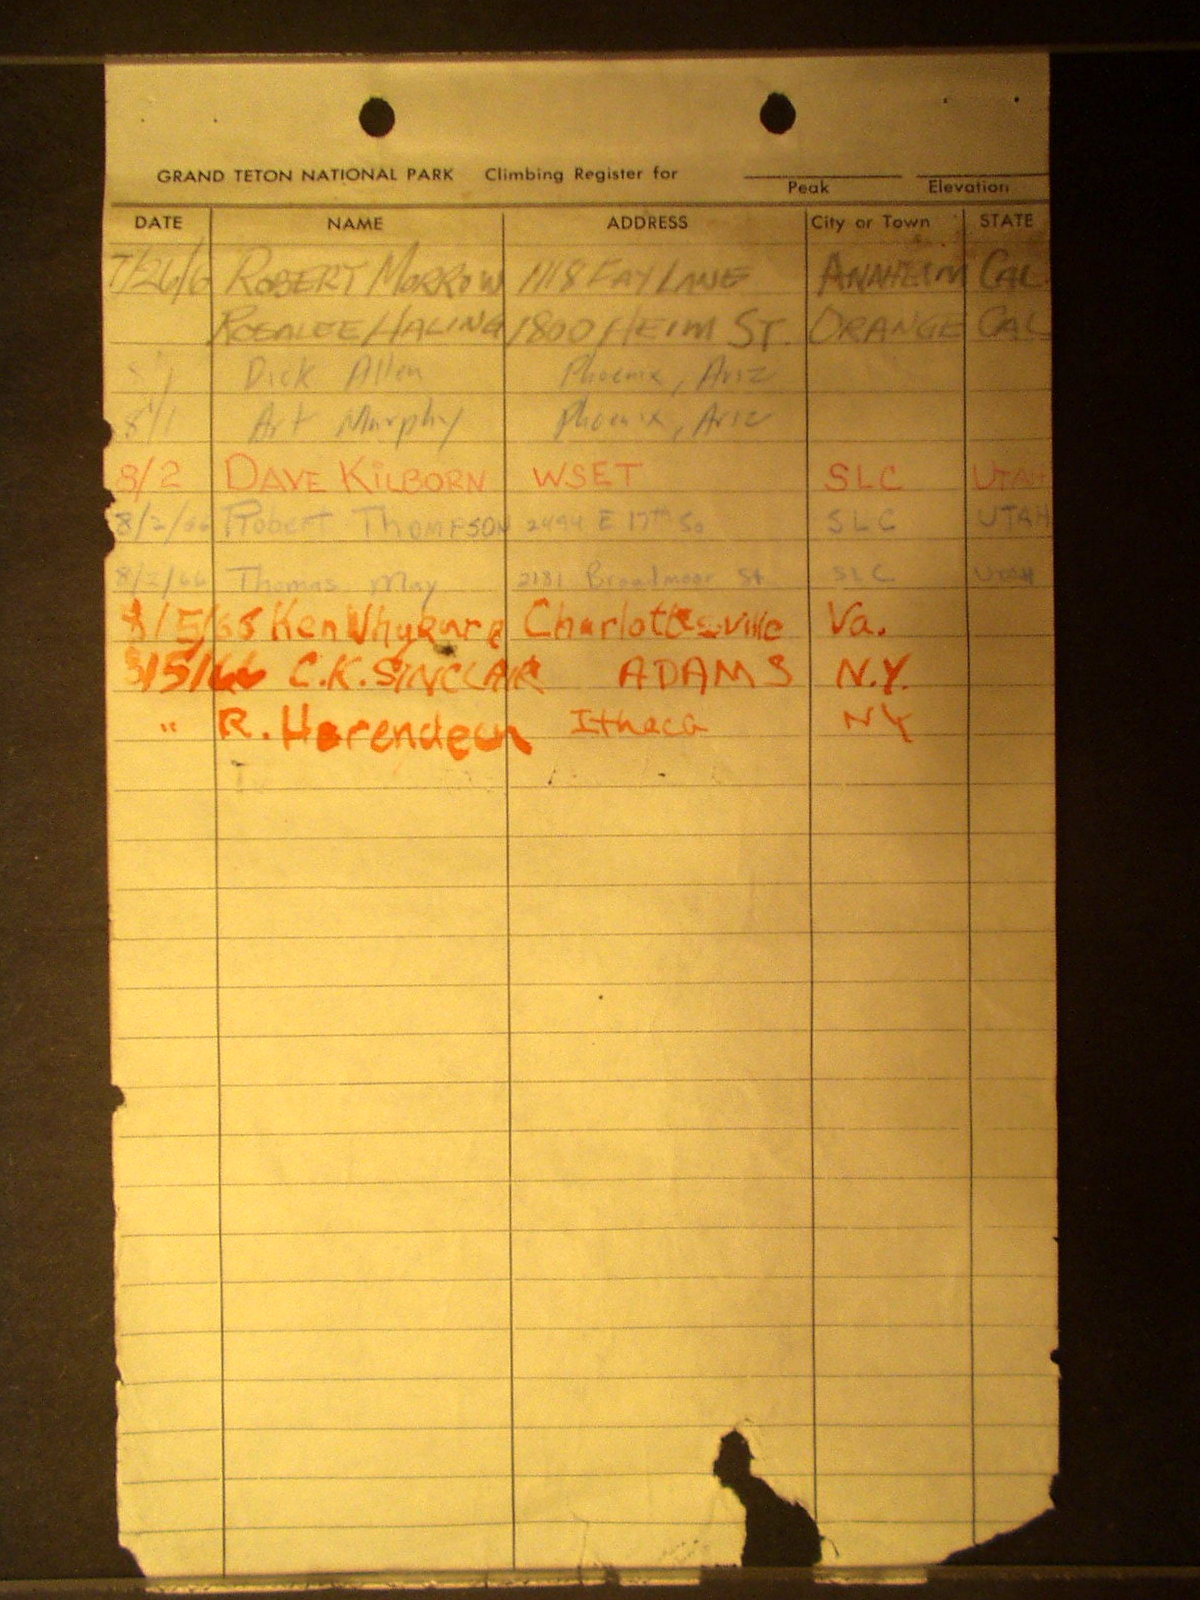 GRAND TETON NATIONAL PARK Climbing Register for
Peak Elevation
DATE NAME ADDRESS City or Town STATE
7/26/6 ROBERT MORROW 1118 FAY LANE ANAHEIM CAL
ROSALEE HALING 1800 HEIM ST. ORANGE CAL
Dick Allen Phoenix, Ariz
8/1 Art Murphy Phoenix, Ariz
8/2 DAVE KILBORN WSET SLC UTAH
8/2/66 Robert THOMPSON 2494 E 17th So SLC UTAH
8/2/66 Thomas May 2181 Broadmoor St SLC UTAH
8/5/65 Ken Charlottesville Va.
8/5/66 C.K. SINCLAIR ADAMS N.Y.
" R. Herendeen Ithaca NY